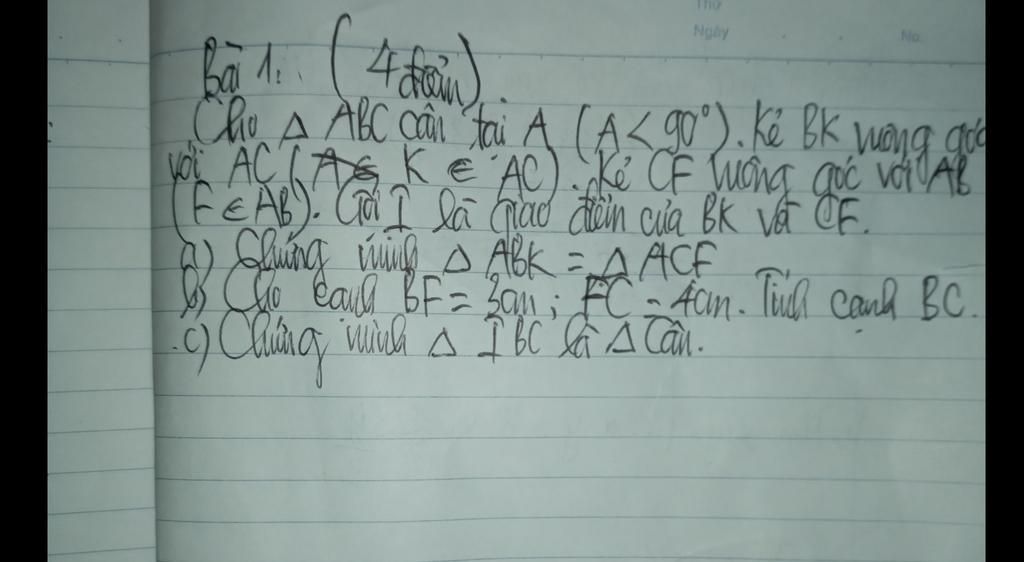 Thứ
Ngày No.
Bài 1: (4 điểm)
Cho Δ ABC cân tại A (A < 90°). Kẻ BK vuông góc
với AC (K ∈ AC). Kẻ CF vuông góc với AB
(F ∈ AB). Gọi I là giao điểm của BK và CF.
a) Chứng minh Δ ABK = Δ ACF
b) Cho cạnh BF = 3cm; FC = 4cm. Tính cạnh BC.
c) Chứng minh Δ IBC là Δ cân.